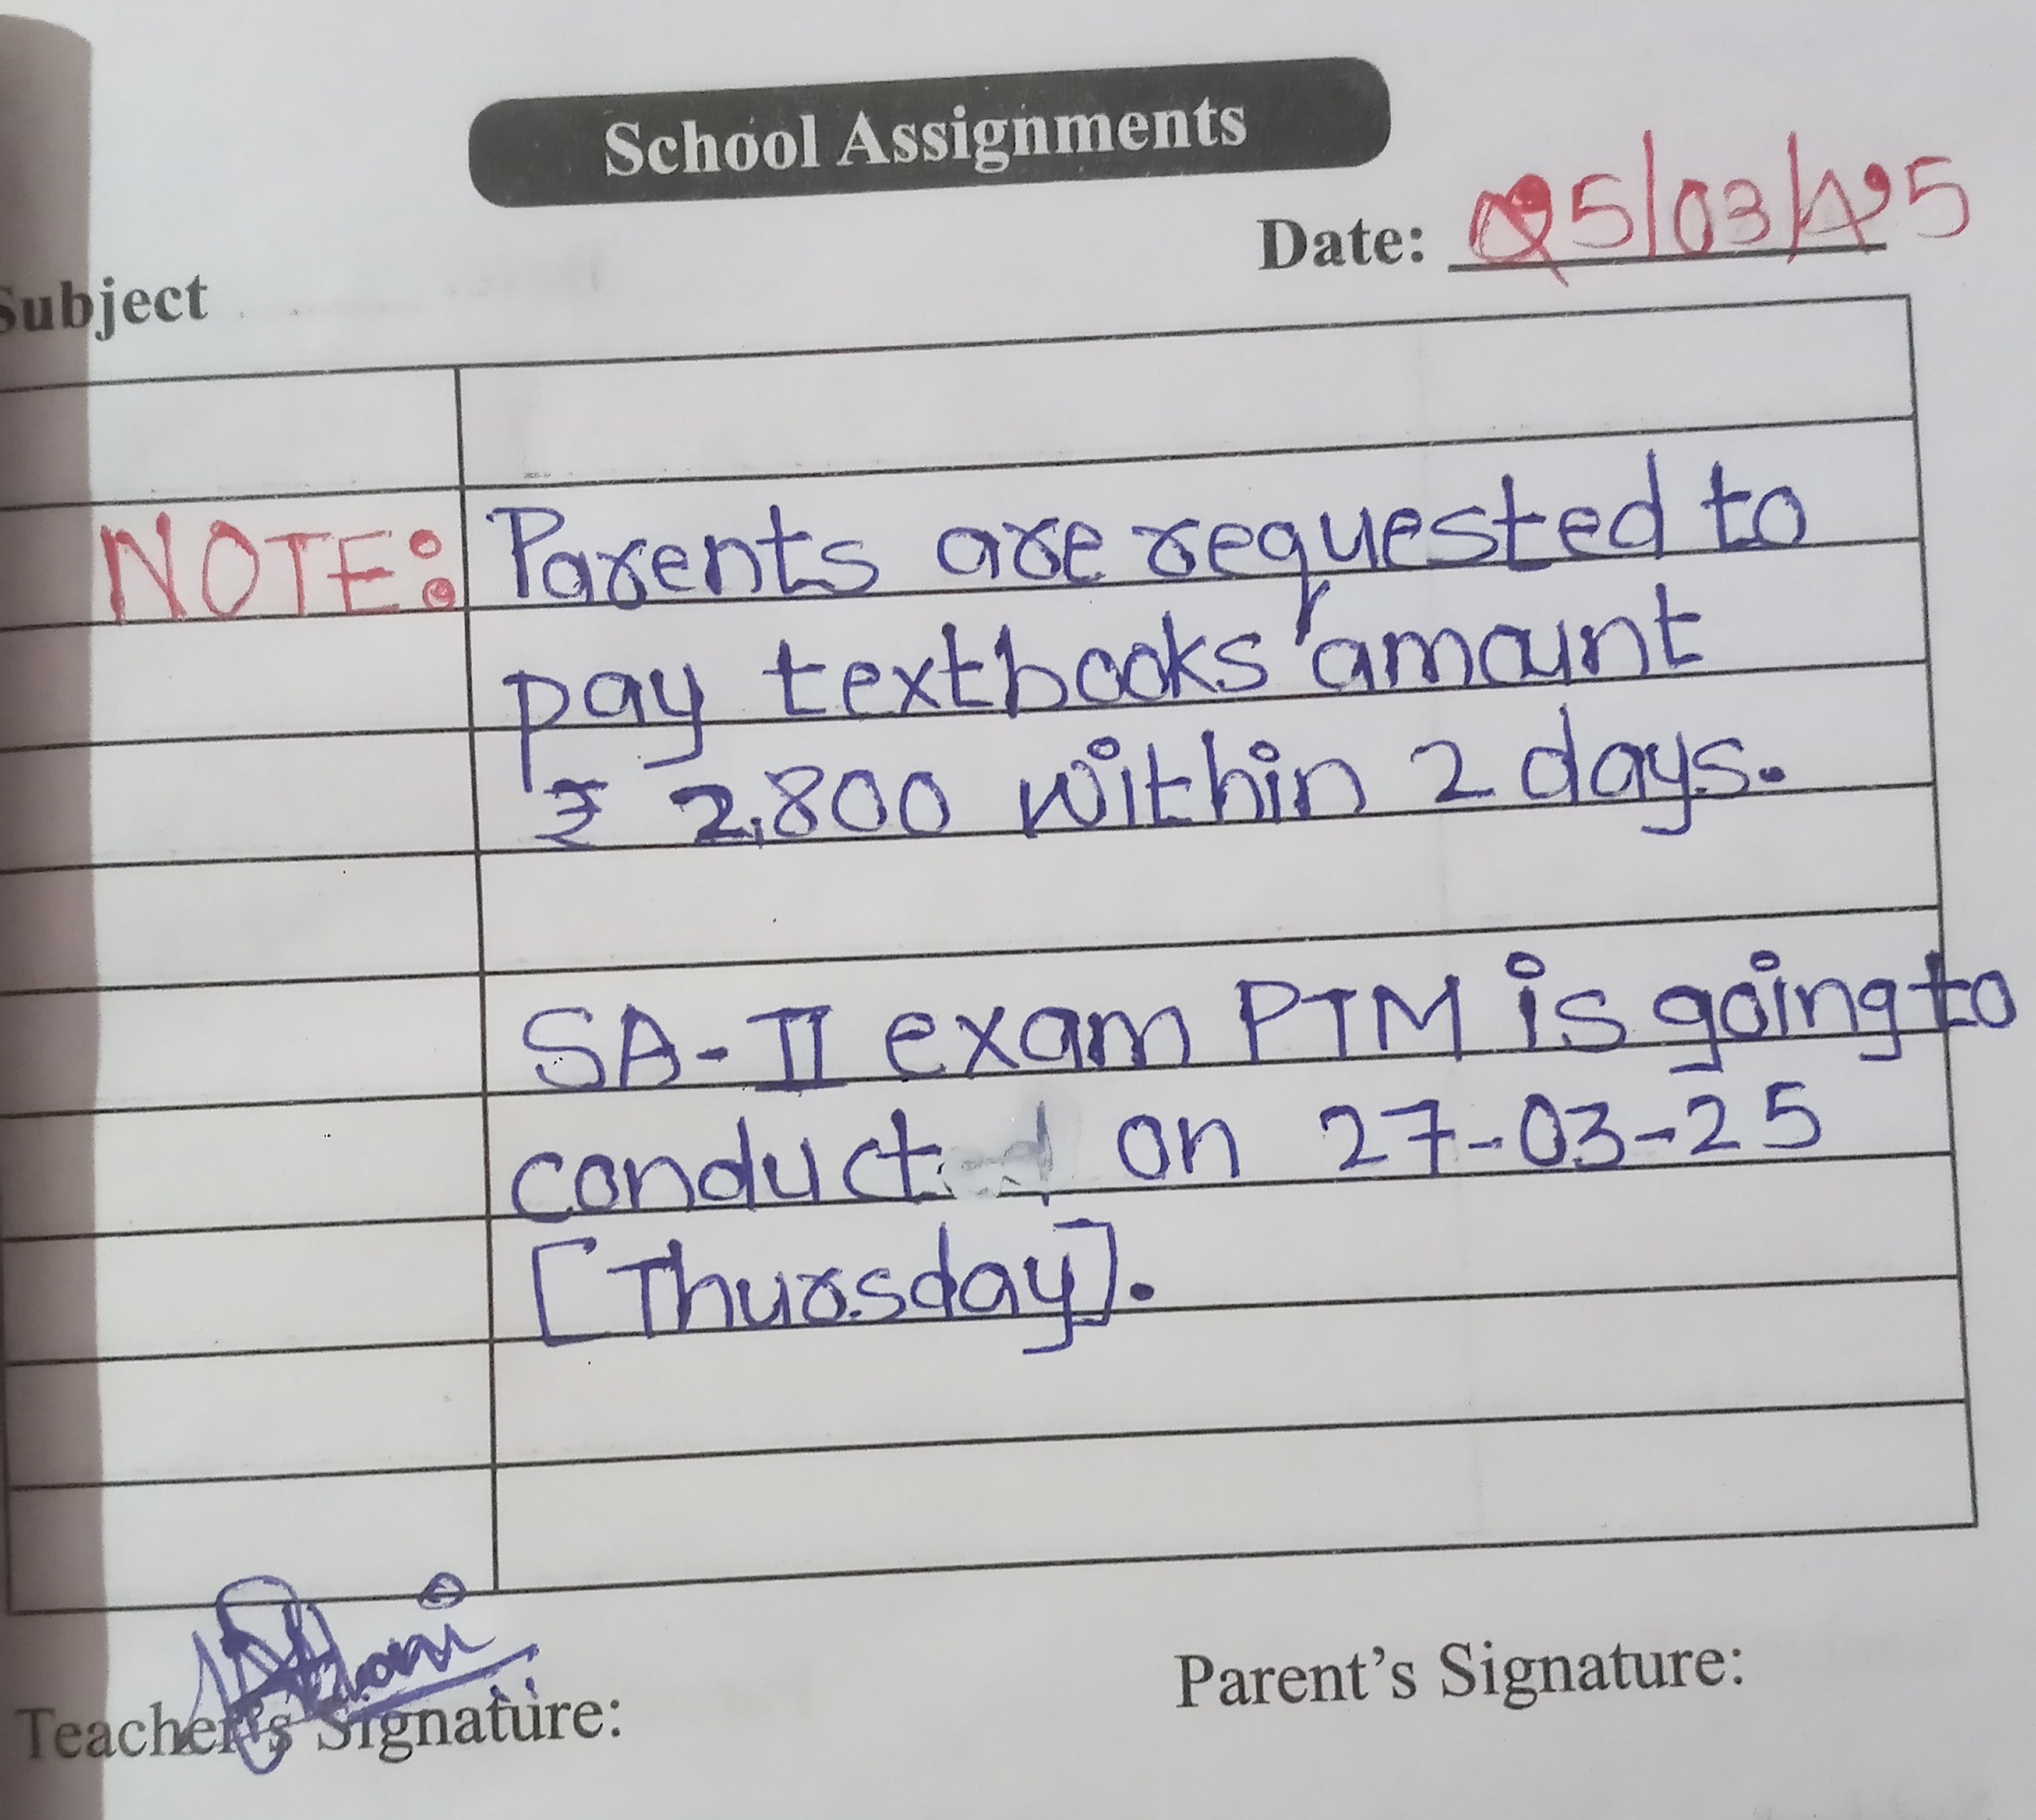 School Assignments
Date: 25/03/25
Subject
NOTE: Parents are requested to
pay textbooks amount
₹ 2,800 within 2 days.
SA-II exam PTM is going to
conduct on 27-03-25
[Thursday].
Teacher's Signature:
Parent's Signature: